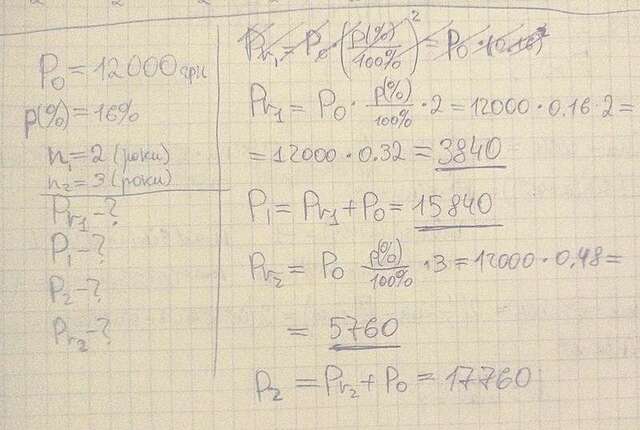 P₀ = 12000 грн
p(%) = 16%
n₁ = 2 (роки)
n₂ = 3 (роки)
Pr₁ - ?
P₁ - ?
P₂ - ?
Pr₂ - ?
Pr₁ = P₀ · (p(%)/100%)² = P₀ · (0.16)²
Pr₁ = P₀ · p(%)/100% · 2 = 12000 · 0.16 · 2 =
= 12000 · 0.32 = 3840
P₁ = Pr₁ + P₀ = 15840
Pr₂ = P₀ p(%)/100% · 3 = 12000 · 0,48 =
= 5760
P₂ = Pr₂ + P₀ = 17760